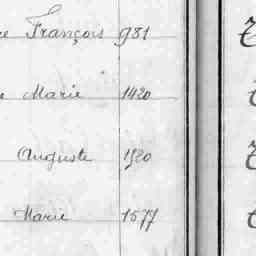 re François 981
e Marie 1420
Auguste 1920
Marie 1577